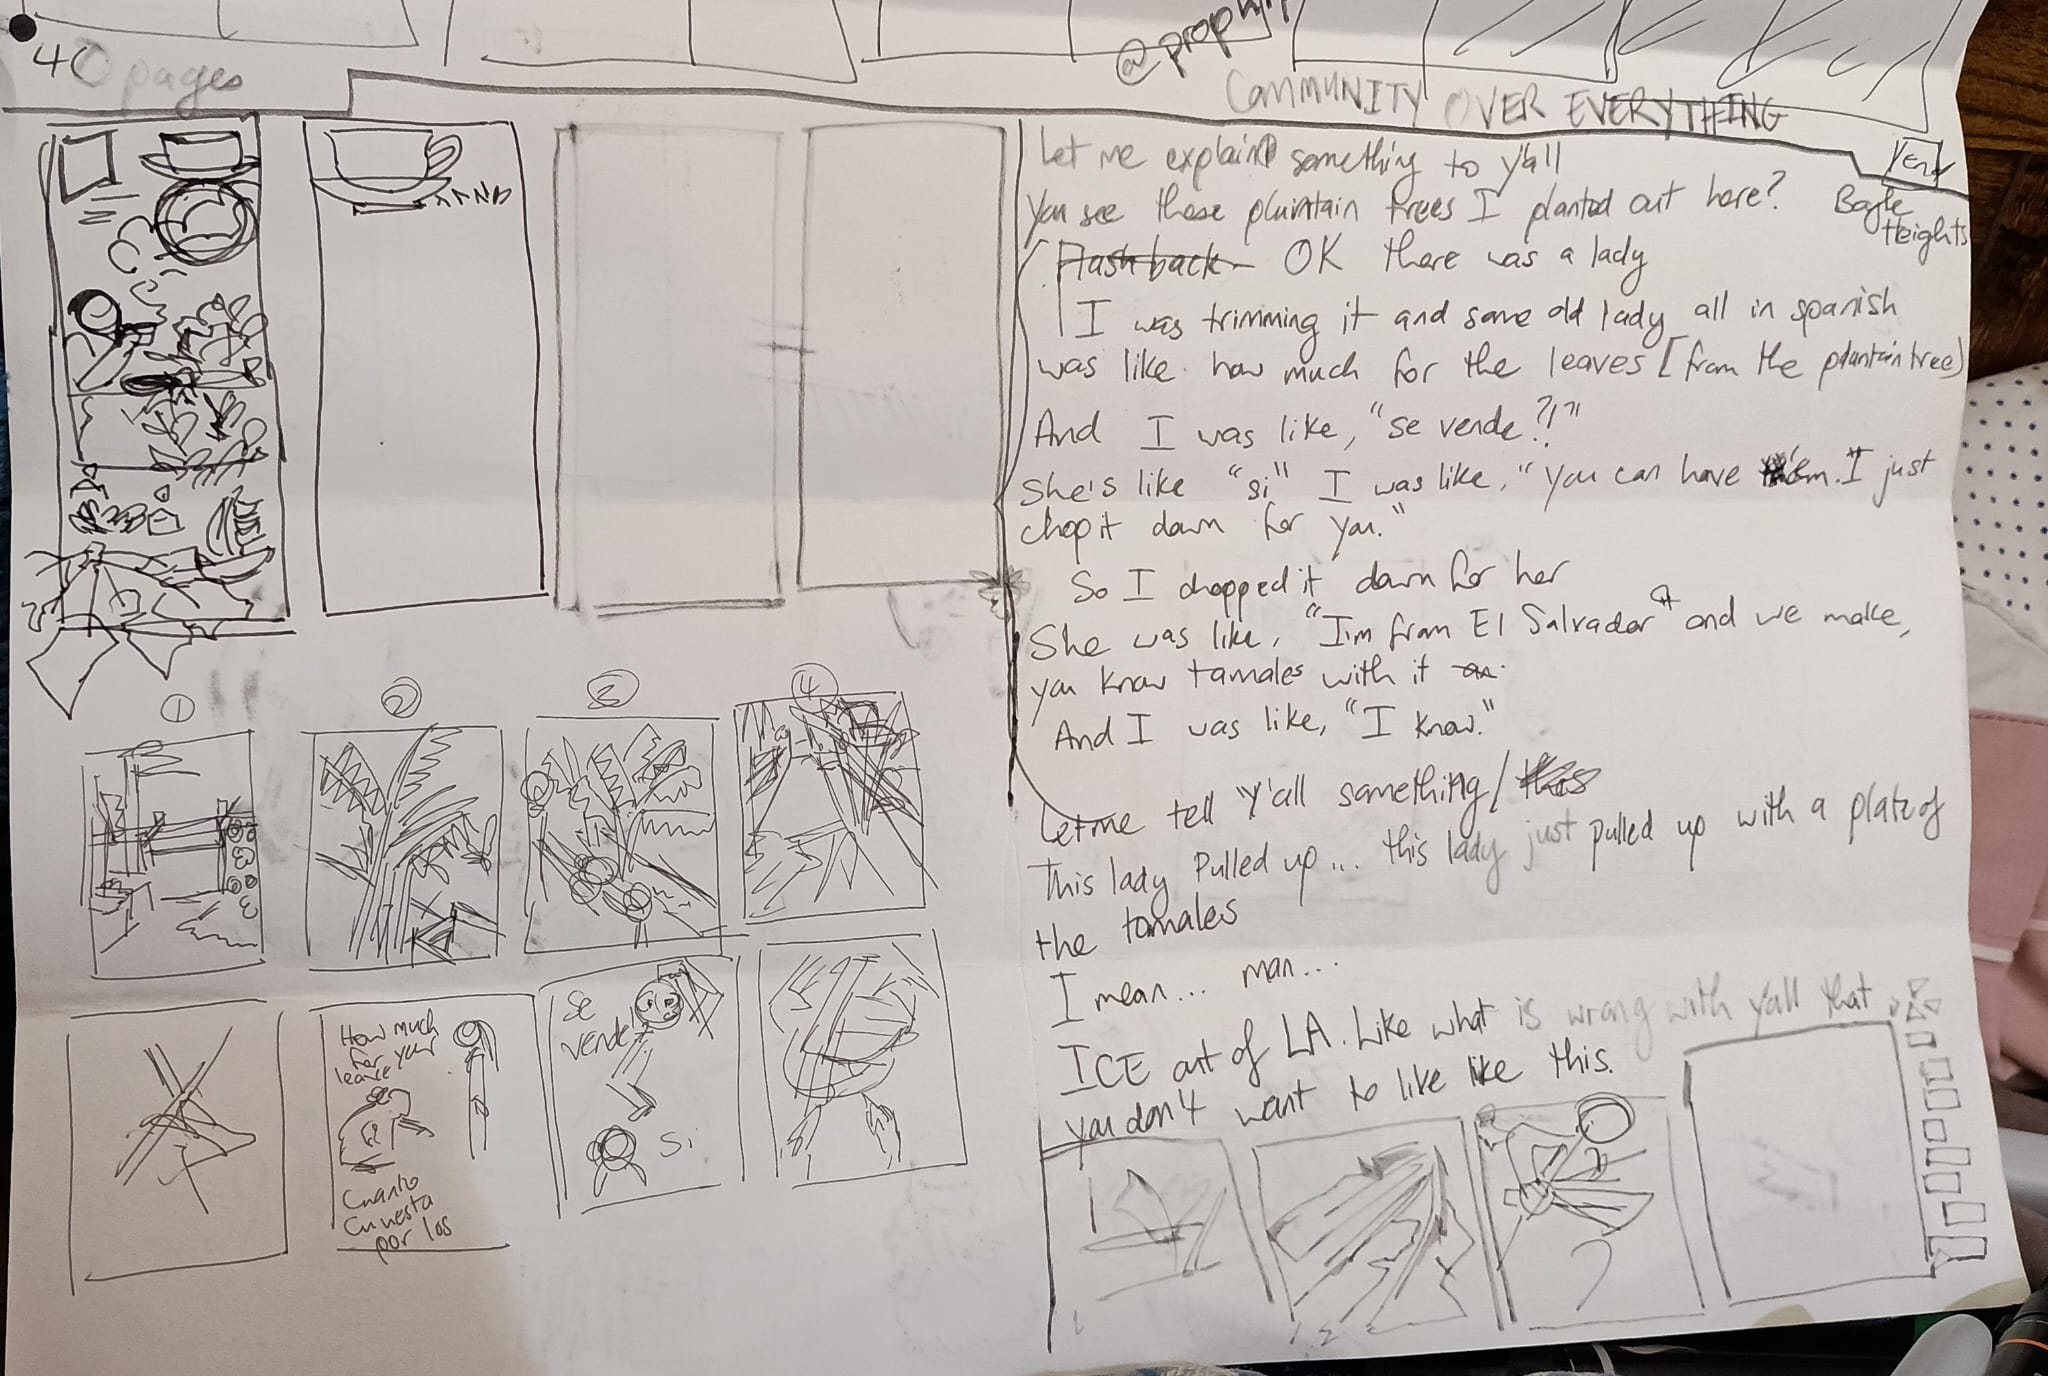 40 pages
COMMUNITY OVER EVERYTHING
Let me explain something to y'all
You see these pluintain trees I planted out here?
Boyle
Heights
Flash back OK there was a lady
I was trimming it and some old lady all in spanish
was like how much for the leaves [from the plantain tree)
And I was like, "se vende?!"
She's like "si" I was like, "you can have them. I just
chop it down for you."
So I chopped it down for her
She was like, "I'm from El Salvador" and we make,
you know tamales with it
And I was like, "I know."
Let me tell y'all something/
This lady Pulled up... this lady just pulled up with a plate of
the tamales
I mean... man...
ICE out of LA. Like what is wrong with y'all that
you don't want to like like this.
1
2
3
4
How much
for your
leave
Cuanto
Cuuesta
por los
Se
vende
Si